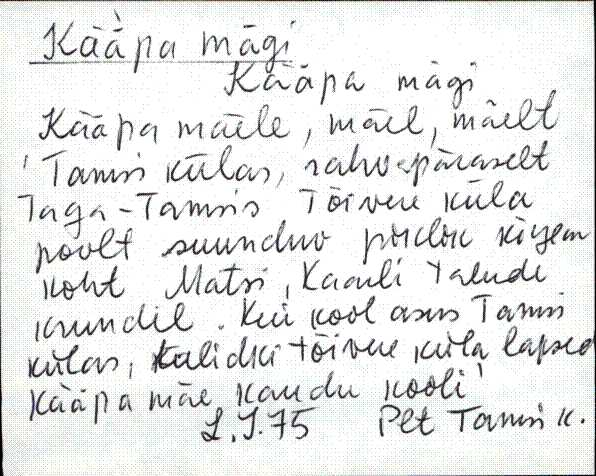 Kääpa mägi
Kääpa mägi
Kääpa mäele, mäel, mäelt
Tamsi külas, rahvapäraselt
Taga-Tamsis Tõivere küla
poolt suunduv kõrgem
koht Matsi, Kaarli talude
krundil. Kui kool asus Tamsi
külas, tulidki Tõivere küla lapsed
Kääpa mäe kaudu kooli
L.J.75 Plt Tamsi k.